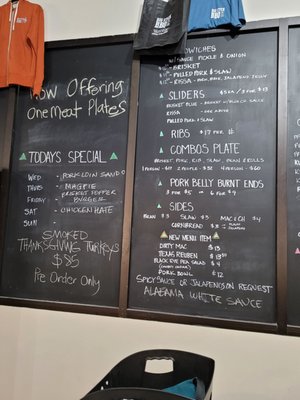 Now Offering
One Meat Plates
TODAYS SPECIAL
WED - PORK LOIN SAND
THURS - MAGPIE
FRIDAY - BRISKET TOPPED BURGER
SAT - CHICKEN HATE
SUN
SMOKED
THANKSGIVING TURKEYS
$85
Pre Order Only
WICHES
W/ SAUCE PICKLE & ONION
BRISKET
PULLED PORK & SLAW
SLIDERS
PULLED PORK & SLAW
RIBS $17 PER
COMBOS PLATE
BRISKET, PORK, RIB, SLAW, BEAN & ROLLS
PORK BELLY BURNT ENDS
3 FOR $5 - 6 FOR $9
SIDES
BEAN $3 SLAW $3 MAC & CH $4
CORNBREAD
NEW MENU ITEM
DIRTY MAC $13
TEXAS REUBEN
BLACK EYE PEA SALAD $4
PORK BOWL $12
SPICY SAUCE OR JALAPENOS ON REQUEST
ALABAMA WHITE SAUCE